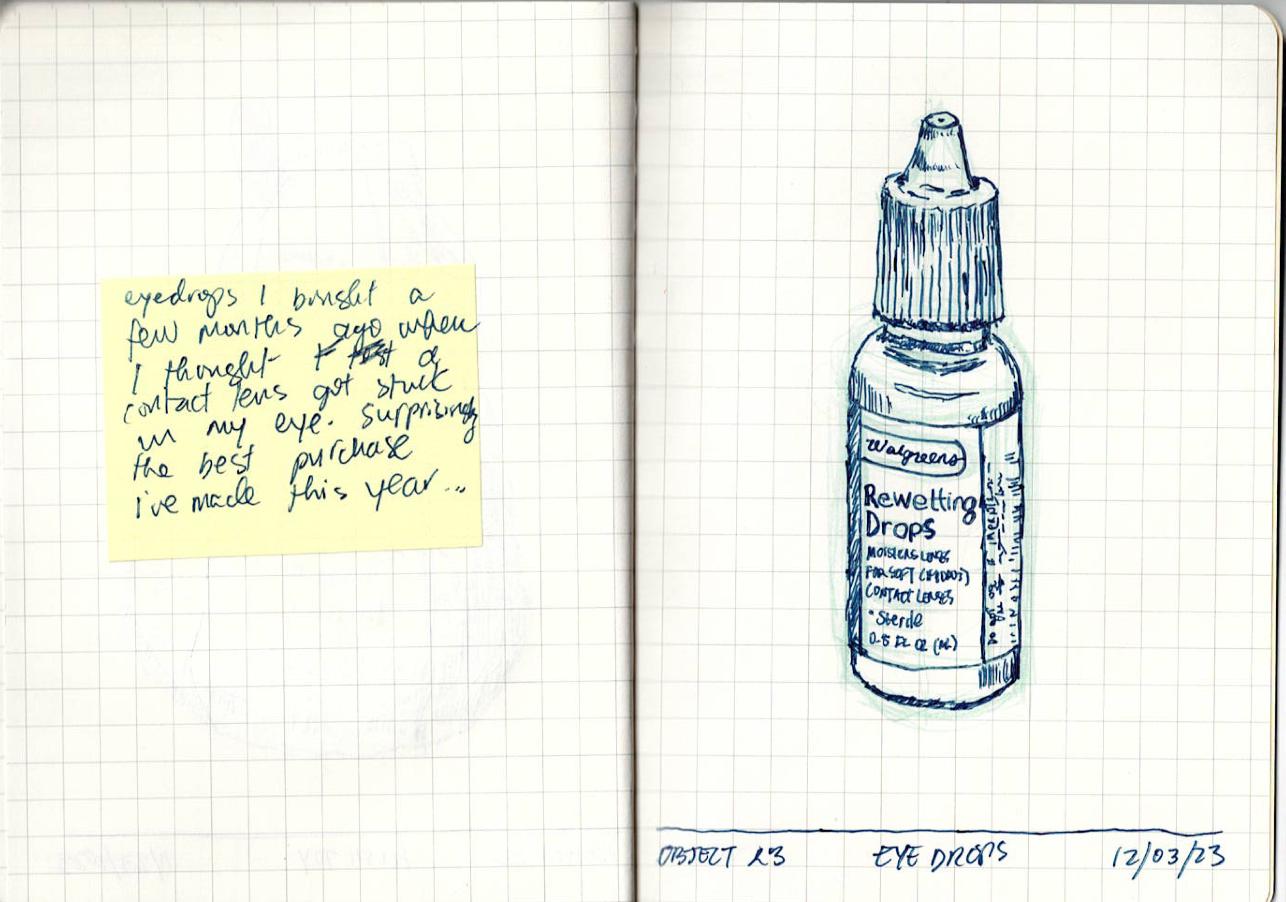 eyedrops I bought a
few months ago when
I thought a
contact lens got stuck
in my eye. Surprisingly
the best purchase
i've made this year...
Walgreens
Rewetting
Drops
MOISTENS LENSES
FOR SOFT
CONTACT LENSES
• Sterile
0.5 FL OZ
OBJECT 23 EYE DROPS 12/03/23